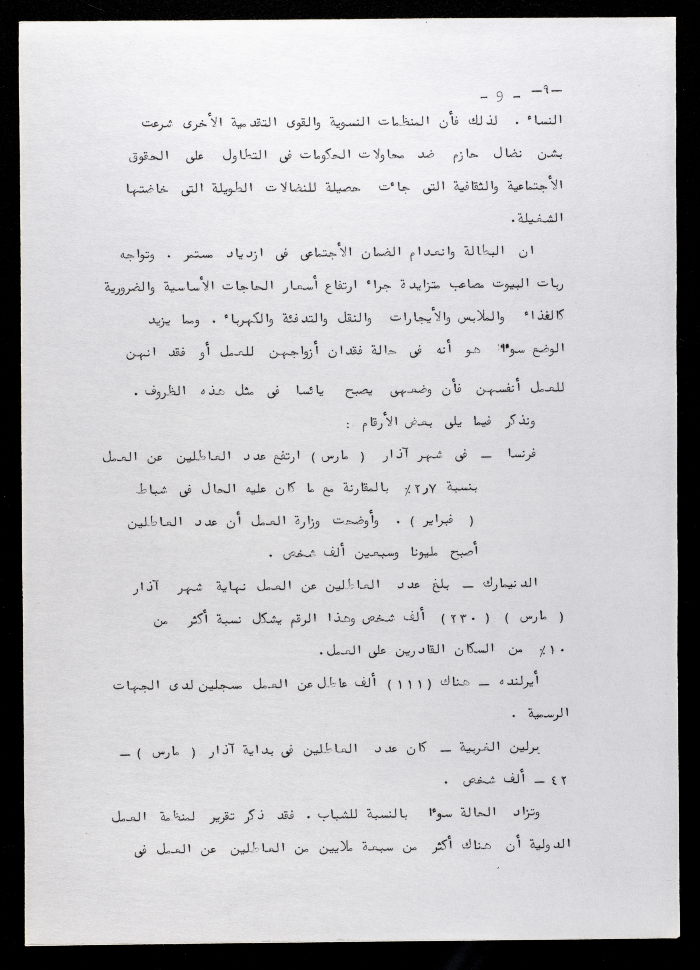 -٩- - 9 -
النساء . لذلك فأن المنظمات النسوية والقوى التقدمية الأخرى شرعت
بشن نضال حازم ضد محاولات الحكومات فى التطاول على الحقوق
الأجتماعية والثقافية التى جاءت حصيلة للنضالات الطويلة التى خاضتها
الشغيلة.
ان البطالة وانعدام الضمان الأجتماعى فى ازدياد مستمر . وتواجه
ربات البيوت مصاعب متزايدة جراء ارتفاع أسعار الحاجات الأساسية والضرورية
كالغذاء والملابس والأيجارات والنقل والتدفئة والكهرباء . ومما يزيد
الوضع سوءا هو أنه فى حالة فقدان أزواجهن للعمل أو فقد انهن
للعمل أنفسهن فأن وضعهى يصبح يائسا فى مثل هذه الظروف .
ونذكر فيما يلى بعض الأرقام :
فرنسا – فى شهر آذار ( مارس ) ارتفع عدد العاطلين عن العمل
بنسبة ٧ر٢٪ بالمقارنة مع ما كان عليه الحال فى شباط
( فبراير ) . وأوضحت وزارة العمل أن عدد العاطلين
أصبح مليونا وسبعين ألف شخص .
الدنيمارك – بلغ عدد العاطلين عن العمل نهاية شهر آذار
( مارس ) ( ٢٣٠ ) ألف شخص وهذا الرقم يشكل نسبة أكثر من
١٠٪ من السكان القادرين على العمل.
أيرلنده – هناك ( ١١١ ) ألف عاطل عن العمل مسجلين لدى الجهات
الرسمية .
برلين الغربية – كان عدد العاطلين فى بداية آذار ( مارس ) –
٤٢ – ألف شخص .
وتزاد الحالة سوءا بالنسبة للشباب . فقد ذكر تقرير لمنظمة العمل
الدولية أن هناك أكثر من سبعة ملايين من العاطلين عن العمل فى